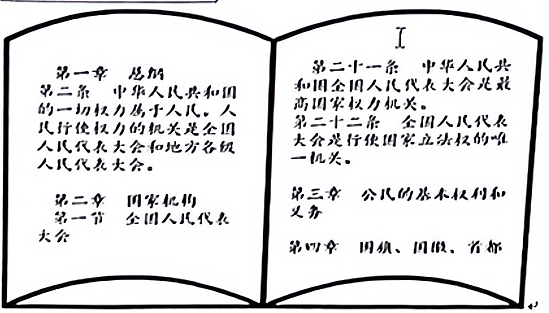 第一章 总纲
第二条 中华人民共和国
的一切权力属于人民。人
民行使权力的机关是全国
人民代表大会和地方各级
人民代表大会。
第二章 国家机构
第一节 全国人民代表
大会
第二十一条 中华人民共
和国全国人民代表大会是最
高国家权力机关。
第二十二条 全国人民代表
大会是行使国家立法权的唯
一机关。
第三章 公民的基本权利和
义务
第四章 国旗、国徽、首都